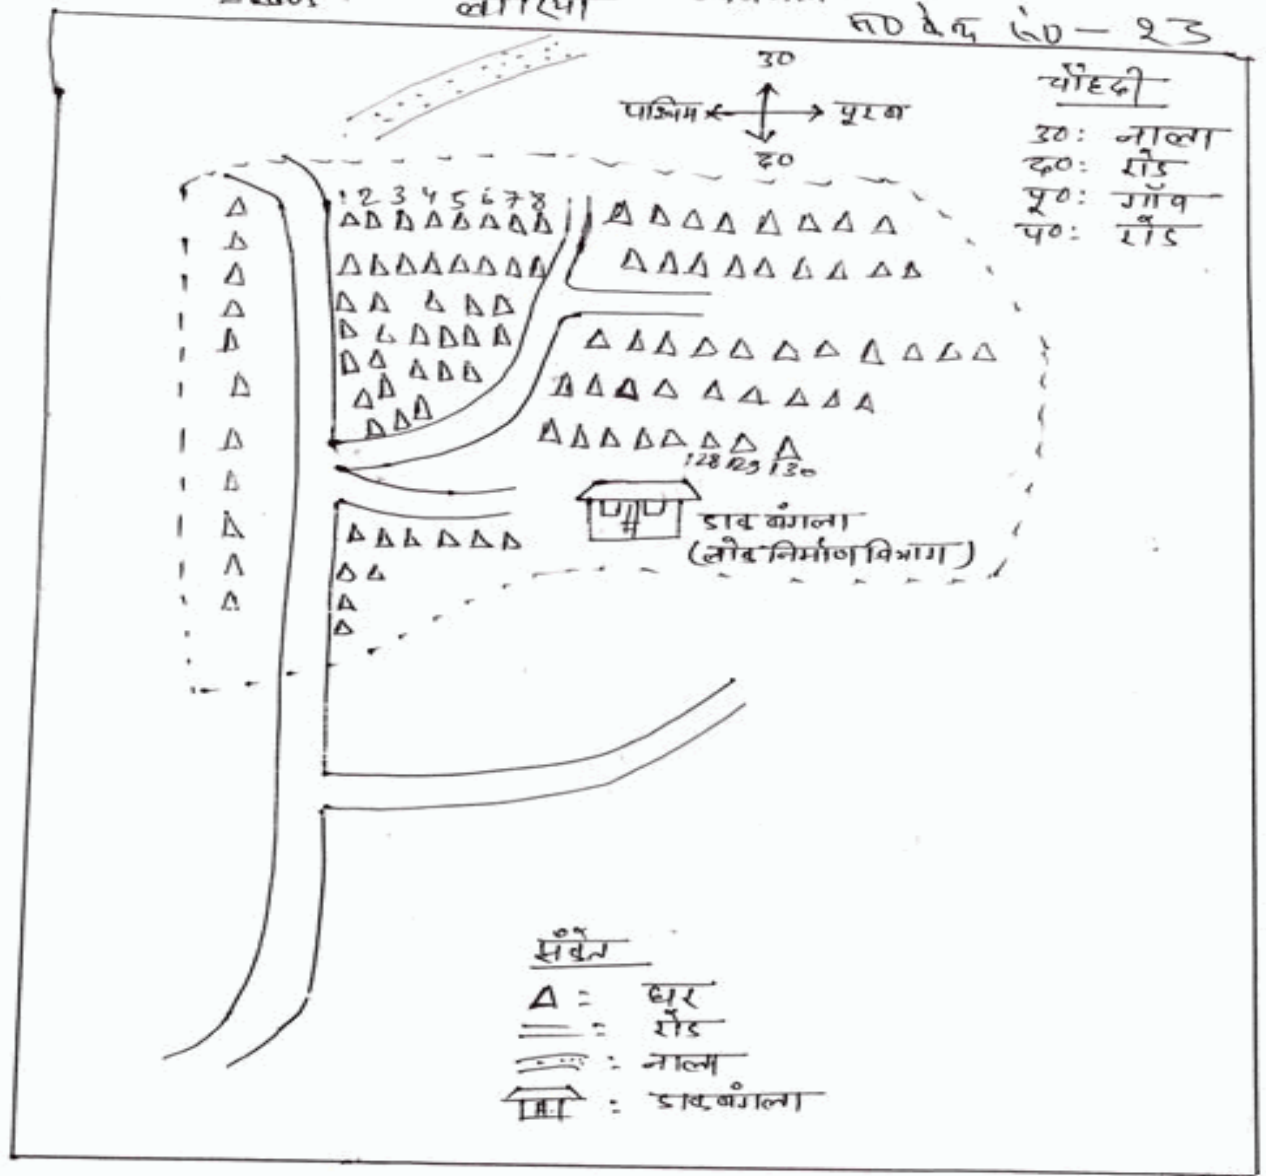 लोरिया
म० के० सं० - 23
उ०
पश्चिम पूरब
द०
चौहद्दी
उ०: नाला
द०: रोड
पू०: गाँव
प०: रोड
1 2 3 4 5 6 7 8
128 129 130
डाक बंगला
(लोक निर्माण विभाग)
संकेत
घर
रोड
नाला
डाक बंगला